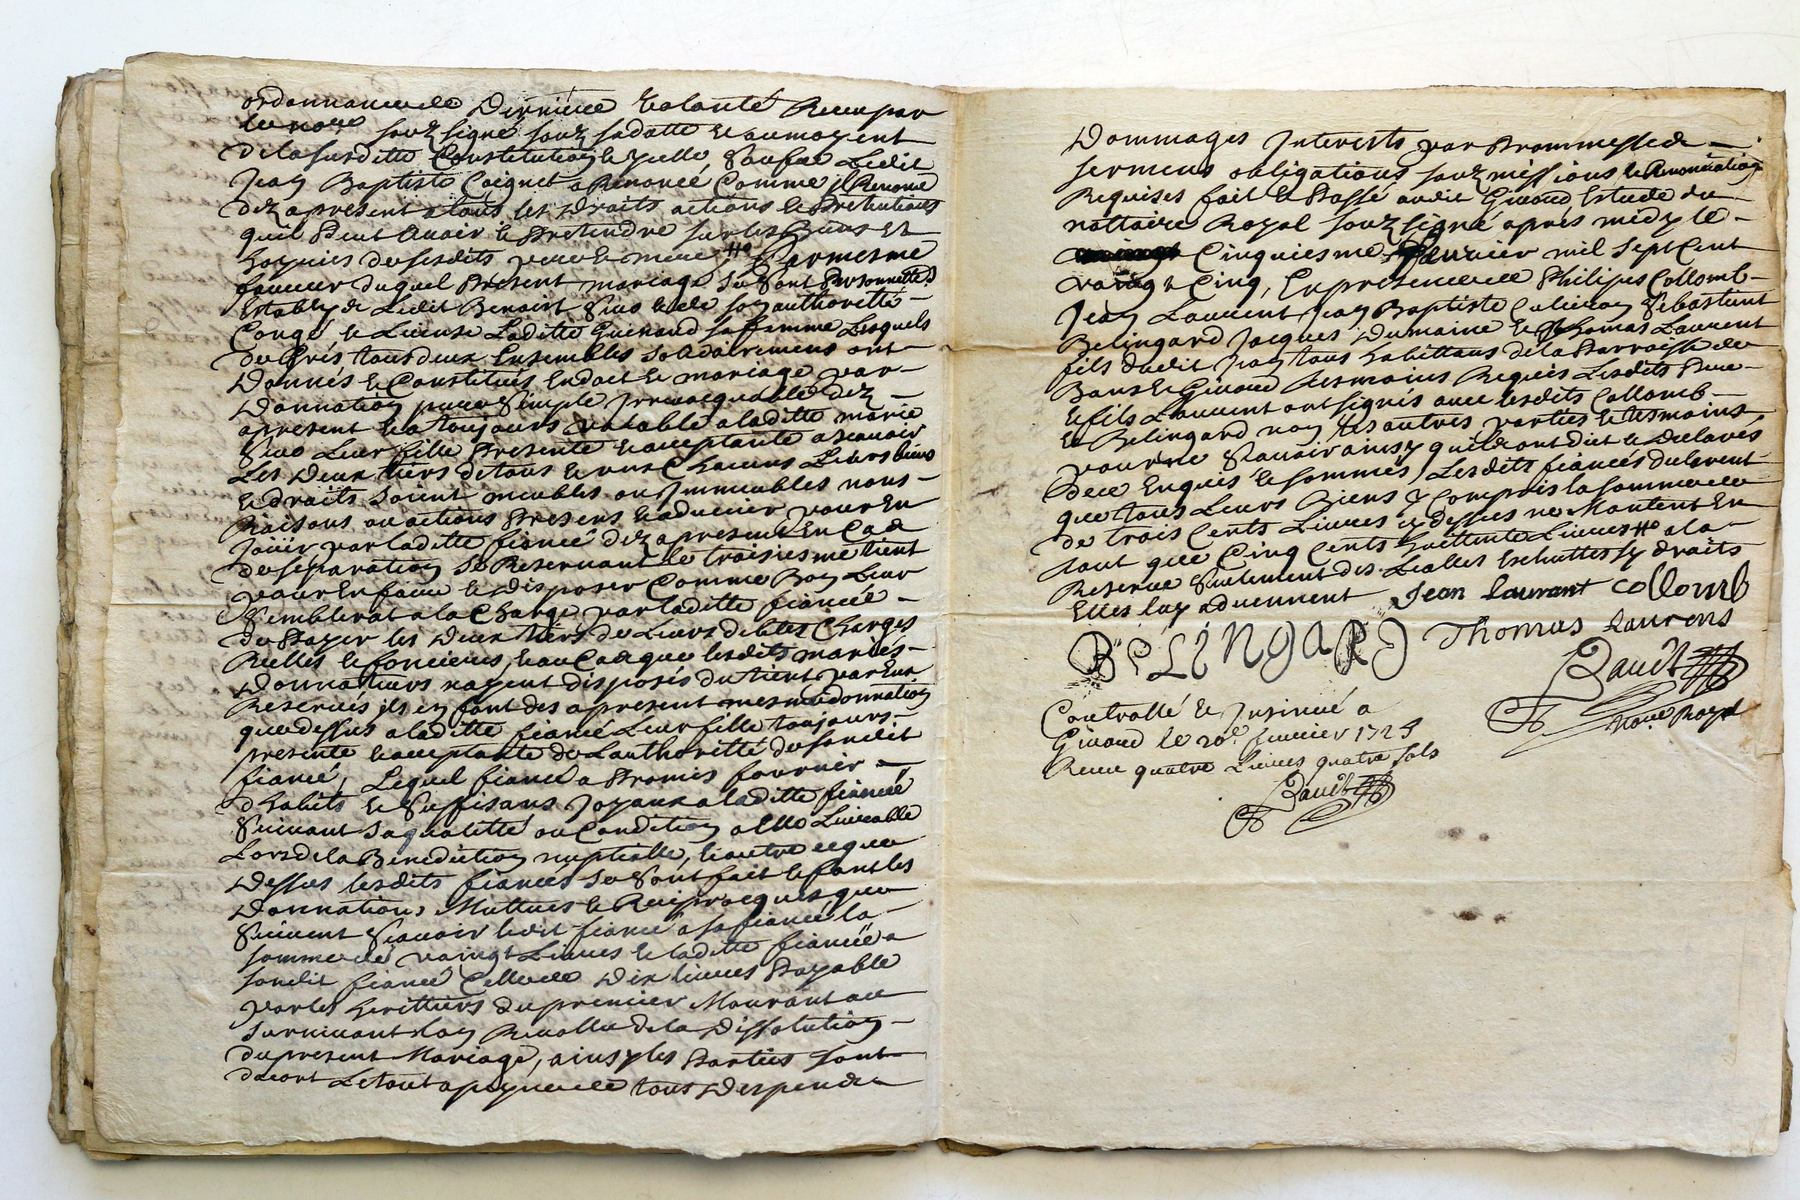 ordonnance de Derniere Volonté Receu par
le no.re souz signé souz sa datte et au moyent
de la susditte Constitution icelle, Ledit
Jean Baptiste Coignet a Renoncé Comme jl Renonce
dez a present a tous les droits actions et Pretentions
quil Peut Avoir et Pretendre sur les Biens Et
hoyries de sesdits pere et mere ## Parmesme
faveur duquel Present mariage se sont Personnelle.t
Estably ledit Benoist et de son authorité
Congé et License Laditte Guinand sa femme Lesquels
de Grés tous deux Ensembles Solidairement ont
Donnés et Constitués en dot et mariage par
Donnation pure Simple Jrrevocquable dez
apresent et a toujours valable a laditte marie
leur fille Presente et acceptante a scavoir
Les Deux tiers de tous et un Chacuns Leurs biens
et droits soient meubles ou Jmmeubles noms
Raisons ou actions Presens et advenir pour En
Joüir par laditte fiancé dez apresent En Cas
de separation se Reservant le troisiesme tient
pour En faire et disposer Comme Bon Leur
Semblerat a la Charge par laditte fiancée
de Payer les Deux tiers de Leurs debtes Charges
Reelles et foncieres, et au Cas que lesdits mariés
Donnateurs nayent disposés du tient par Eux
Reservés jls en font des a present mesme donnation
que dessus a laditte fiancé Leur fille toujours
presente et acceptante de Lauthorité de sondit
fiancé, Lequel fiancé a Promis fournir
dhabits et Suffisans Joyaux a laditte fiancée
Suivant sa qualitté ou Condition a Elle Livrable
Lors de la Benediction nuptialle, et outre ce que
Dessus lesdits fiancés se sont fait et font les
Donnations Muttues et Reciprocques que
Suivent Scavoir ledit fiancé a sa fiancée la
somme de vaingt Livres et laditte fiancée a
sondit fiancé Celle de Dix livres Payable
par les herittiers du premier Mourant au
survivant de la Dissolution
du present Mariage, ainsy les Parties sont
dacort Letout a peyne de tous Despends
Dommages Jnterests par Prommesse de
serment obligations souzmissions et Renonciation
Requises fait et Passé audit Givord Estude du
nottaire Royal souz signé aprés midy le
Cinquiesme Janvier mil sept Cent
vaingt Cinq, En presence de Philipes Collomb
Jean Laurent Jean Baptiste Sebastient
Belingard Jacques Dumaine et Thomas Laurent
fils dudit Jean tous habittans de la Parroisse de
Bans et Givord tesmoins Requis Lesdits Pere
et fils Laurent ont signés avec lesdits Collomb
et Belingard non les autres parties et tesmoins
pour ne Scavoir ainsy quils ont dict et Declarés
de ce Enquis et sommés, Lesdits fiancés declarent
que tous Leurs Biens y Compris la somme de
de trois Cents Livres cy dessus ne Montent En
tout que Cinq Cents huittente Livres ## a la
Reserve Seulement des Escheuttes sy droits
Elles luy adviennent Jean laurant collomb
BELiNgARD Thomas laurens
Baudt
No.re Royal
Controllé et Jnsinué a
Givord le 20.e Janvier 1725
Receu quatre Livres quatre sols
Baudt